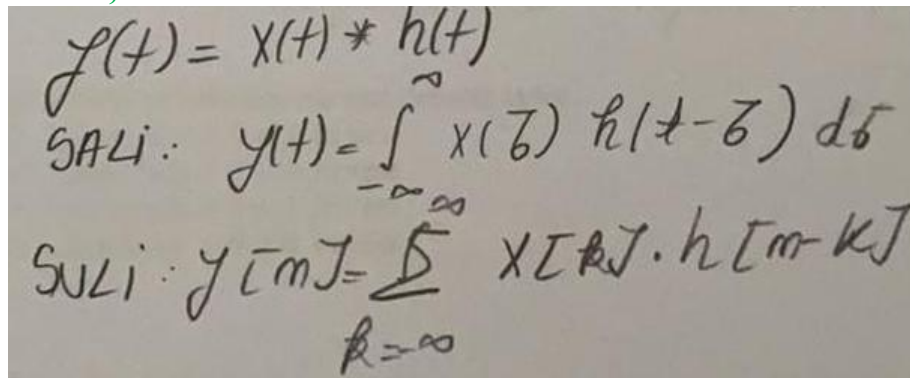 y(t) = x(t) * h(t)
SALi: y(t) = ∫_{-∞}^{∞} x(τ) h(t-τ) dτ
SULi: y[n] = ∑_{k=-∞}^{∞} x[k] . h[n-k]